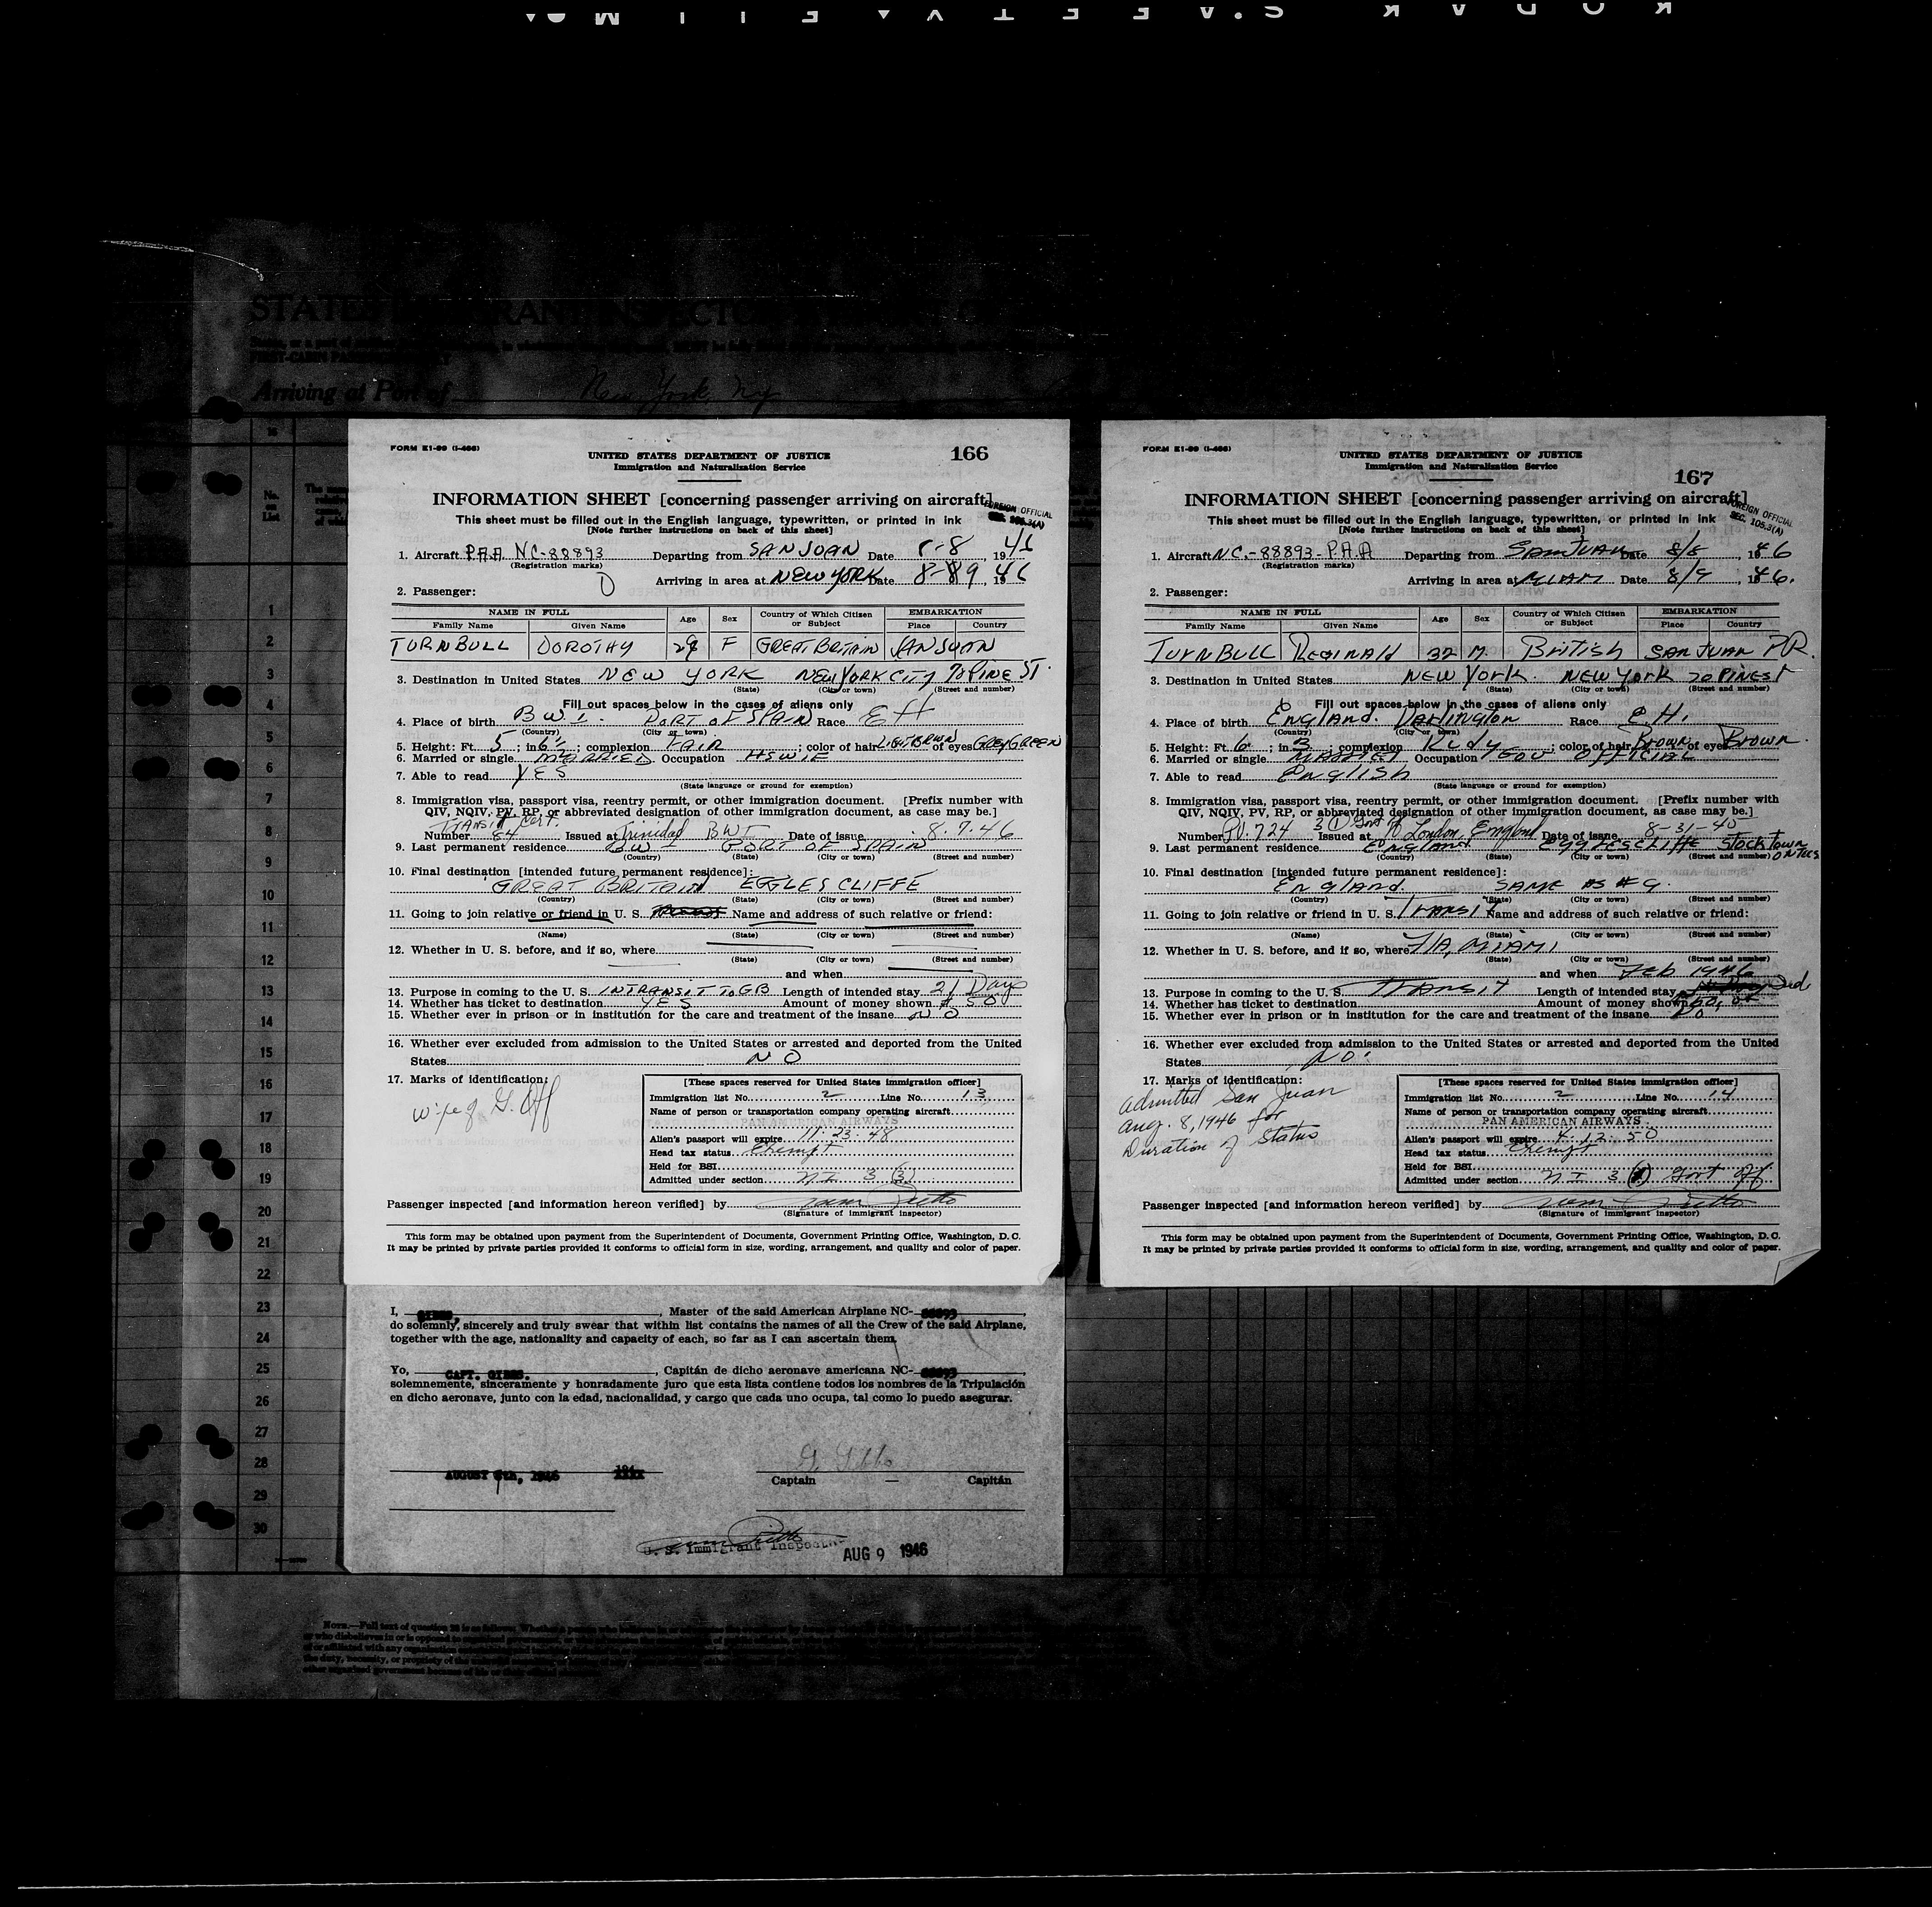 KODAK SAFETY FILM
Arriving at Port of New York, Ny
FORM I-466
UNITED STATES DEPARTMENT OF JUSTICE
Immigration and Naturalization Service
166
INFORMATION SHEET [concerning passenger arriving on aircraft]
FOREIGN OFFICIAL
SEC. 105.3(A)
This sheet must be filled out in the English language, typewritten, or printed in ink
[Note further instructions on back of this sheet]
1. Aircraft P.A.A. NC-88893 Departing from SAN JUAN Date 8-8, 1946
(Registration marks)
Arriving in area at NEW YORK Date 8-9, 1946
2. Passenger:
NAME IN FULL Age Sex Country of Which Citizen or Subject EMBARKATION
Family Name Given Name Place Country
TURNBULL DOROTHY 29 F GREAT BRITAIN SAN JUAN
3. Destination in United States NEW YORK NEW YORK CITY 70 PINE ST.
(State) (City or town) (Street and number)
Fill out spaces below in the cases of aliens only
4. Place of birth B W I. PORT OF SPAIN Race
(Country) (City or town)
5. Height: Ft. 5; in 6½; complexion FAIR; color of hair LIGHT BRWN of eyes GREY GREEN
6. Married or single MARRIED Occupation HSWIE
7. Able to read YES
(State language or ground for exemption)
8. Immigration visa, passport visa, reentry permit, or other immigration document. [Prefix number with
QIV, NQIV, PV, RP, or abbreviated designation of other immigration document, as case may be.]
Transit Cert.
Number 84 Issued at Trinidad BWI Date of issue 8.7.46
9. Last permanent residence BWI PORT OF SPAIN
(Country) (State) (City or town) (Street and number)
10. Final destination [intended future permanent residence]:
GREAT BRITAIN EGGLES CLIFFE
(Country) (State) (City or town) (Street and number)
11. Going to join relative or friend in U. S. Name and address of such relative or friend:
(Name) (State) (City or town) (Street and number)
12. Whether in U. S. before, and if so, where
(State) (City or town) (Street and number)
and when
13. Purpose in coming to the U. S. INTRANSIT TO GB Length of intended stay 21 Days
14. Whether has ticket to destination YES Amount of money shown $ 50
15. Whether ever in prison or in institution for the care and treatment of the insane NO
16. Whether ever excluded from admission to the United States or arrested and deported from the United
States NO
17. Marks of identification:
wife of G. Off
[These spaces reserved for United States immigration officer]
Immigration list No. 2 Line No. 13
Name of person or transportation company operating aircraft
PAN AMERICAN AIRWAYS
Alien's passport will expire 11-23-48
Head tax status Exempt
Held for BSI
Admitted under section NI 3 (3)
Passenger inspected [and information hereon verified] by
(Signature of immigrant inspector)
This form may be obtained upon payment from the Superintendent of Documents, Government Printing Office, Washington, D. C.
It may be printed by private parties provided it conforms to official form in size, wording, arrangement, and quality and color of paper.
I, GIBBS, Master of the said American Airplane NC- 88893,
do solemnly, sincerely and truly swear that within list contains the names of all the Crew of the said Airplane,
together with the age, nationality and capacity of each, so far as I can ascertain them.
Yo, CAPT. GIBBS., Capitán de dicho aeronave americana NC- 88893,
solemnemente, sinceramente y honradamente juro que esta lista contiene todos los nombres de la Tripulación
en dicho aeronave, junto con la edad, nacionalidad, y cargo que cada uno ocupa, tal como lo puedo asegurar.
AUGUST 9th, 1946
G. Gibbs
Captain — Capitán
U. S. Immigrant Inspector
AUG 9 1946
FORM I-466
UNITED STATES DEPARTMENT OF JUSTICE
Immigration and Naturalization Service
167
INFORMATION SHEET [concerning passenger arriving on aircraft]
FOREIGN OFFICIAL
SEC. 105.3(A)
This sheet must be filled out in the English language, typewritten, or printed in ink
[Note further instructions on back of this sheet]
1. Aircraft NC.-88893-P.A.A Departing from SAN JUAN Date 8/8, 1946
(Registration marks)
Arriving in area at MIAMI Date 8/9, 1946.
2. Passenger:
NAME IN FULL Age Sex Country of Which Citizen or Subject EMBARKATION
Family Name Given Name Place Country
TURNBULL Reginald 32 M. British SAN JUAN P.R.
3. Destination in United States NEW York. NEW York 70 PINE ST
(State) (City or town) (Street and number)
Fill out spaces below in the cases of aliens only
4. Place of birth England. Darlington Race
(Country) (City or town)
5. Height: Ft. 6; in 3; complexion Rudy; color of hair Brown of eyes Brown.
6. Married or single MARRIED Occupation GOV OFFICIAL
7. Able to read English
(State language or ground for exemption)
8. Immigration visa, passport visa, reentry permit, or other immigration document. [Prefix number with
QIV, NQIV, PV, RP, or abbreviated designation of other immigration document, as case may be.]
Number PV. 724 3(1) Govt Issued at London, England Date of issue 8-31-40
9. Last permanent residence England Egglescliffe Stocktown on Tees
(Country) (State) (City or town) (Street and number)
10. Final destination [intended future permanent residence]:
England. SAME AS # 9.
(Country) (State) (City or town) (Street and number)
11. Going to join relative or friend in U. S. Transit Name and address of such relative or friend:
(Name) (State) (City or town) (Street and number)
12. Whether in U. S. before, and if so, where FLA, MIAMI
(State) (City or town) (Street and number)
and when Feb 1946
13. Purpose in coming to the U. S. Transit Length of intended stay
14. Whether has ticket to destination Amount of money shown
15. Whether ever in prison or in institution for the care and treatment of the insane No
16. Whether ever excluded from admission to the United States or arrested and deported from the United
States NO.
17. Marks of identification:
Admitted San Juan
Aug. 8, 1946 for
Duration of Status
[These spaces reserved for United States immigration officer]
Immigration list No. 2 Line No. 14
Name of person or transportation company operating aircraft
PAN AMERICAN AIRWAYS
Alien's passport will expire 4-12-50
Head tax status Exempt
Held for BSI
Admitted under section NI 3 (1) Govt Off
Passenger inspected [and information hereon verified] by
(Signature of immigrant inspector)
This form may be obtained upon payment from the Superintendent of Documents, Government Printing Office, Washington, D. C.
It may be printed by private parties provided it conforms to official form in size, wording, arrangement, and quality and color of paper.
No. on List
1
2
3
4
5
6
7
8
9
10
11
12
13
14
15
16
17
18
19
20
21
22
23
24
25
26
27
28
29
30